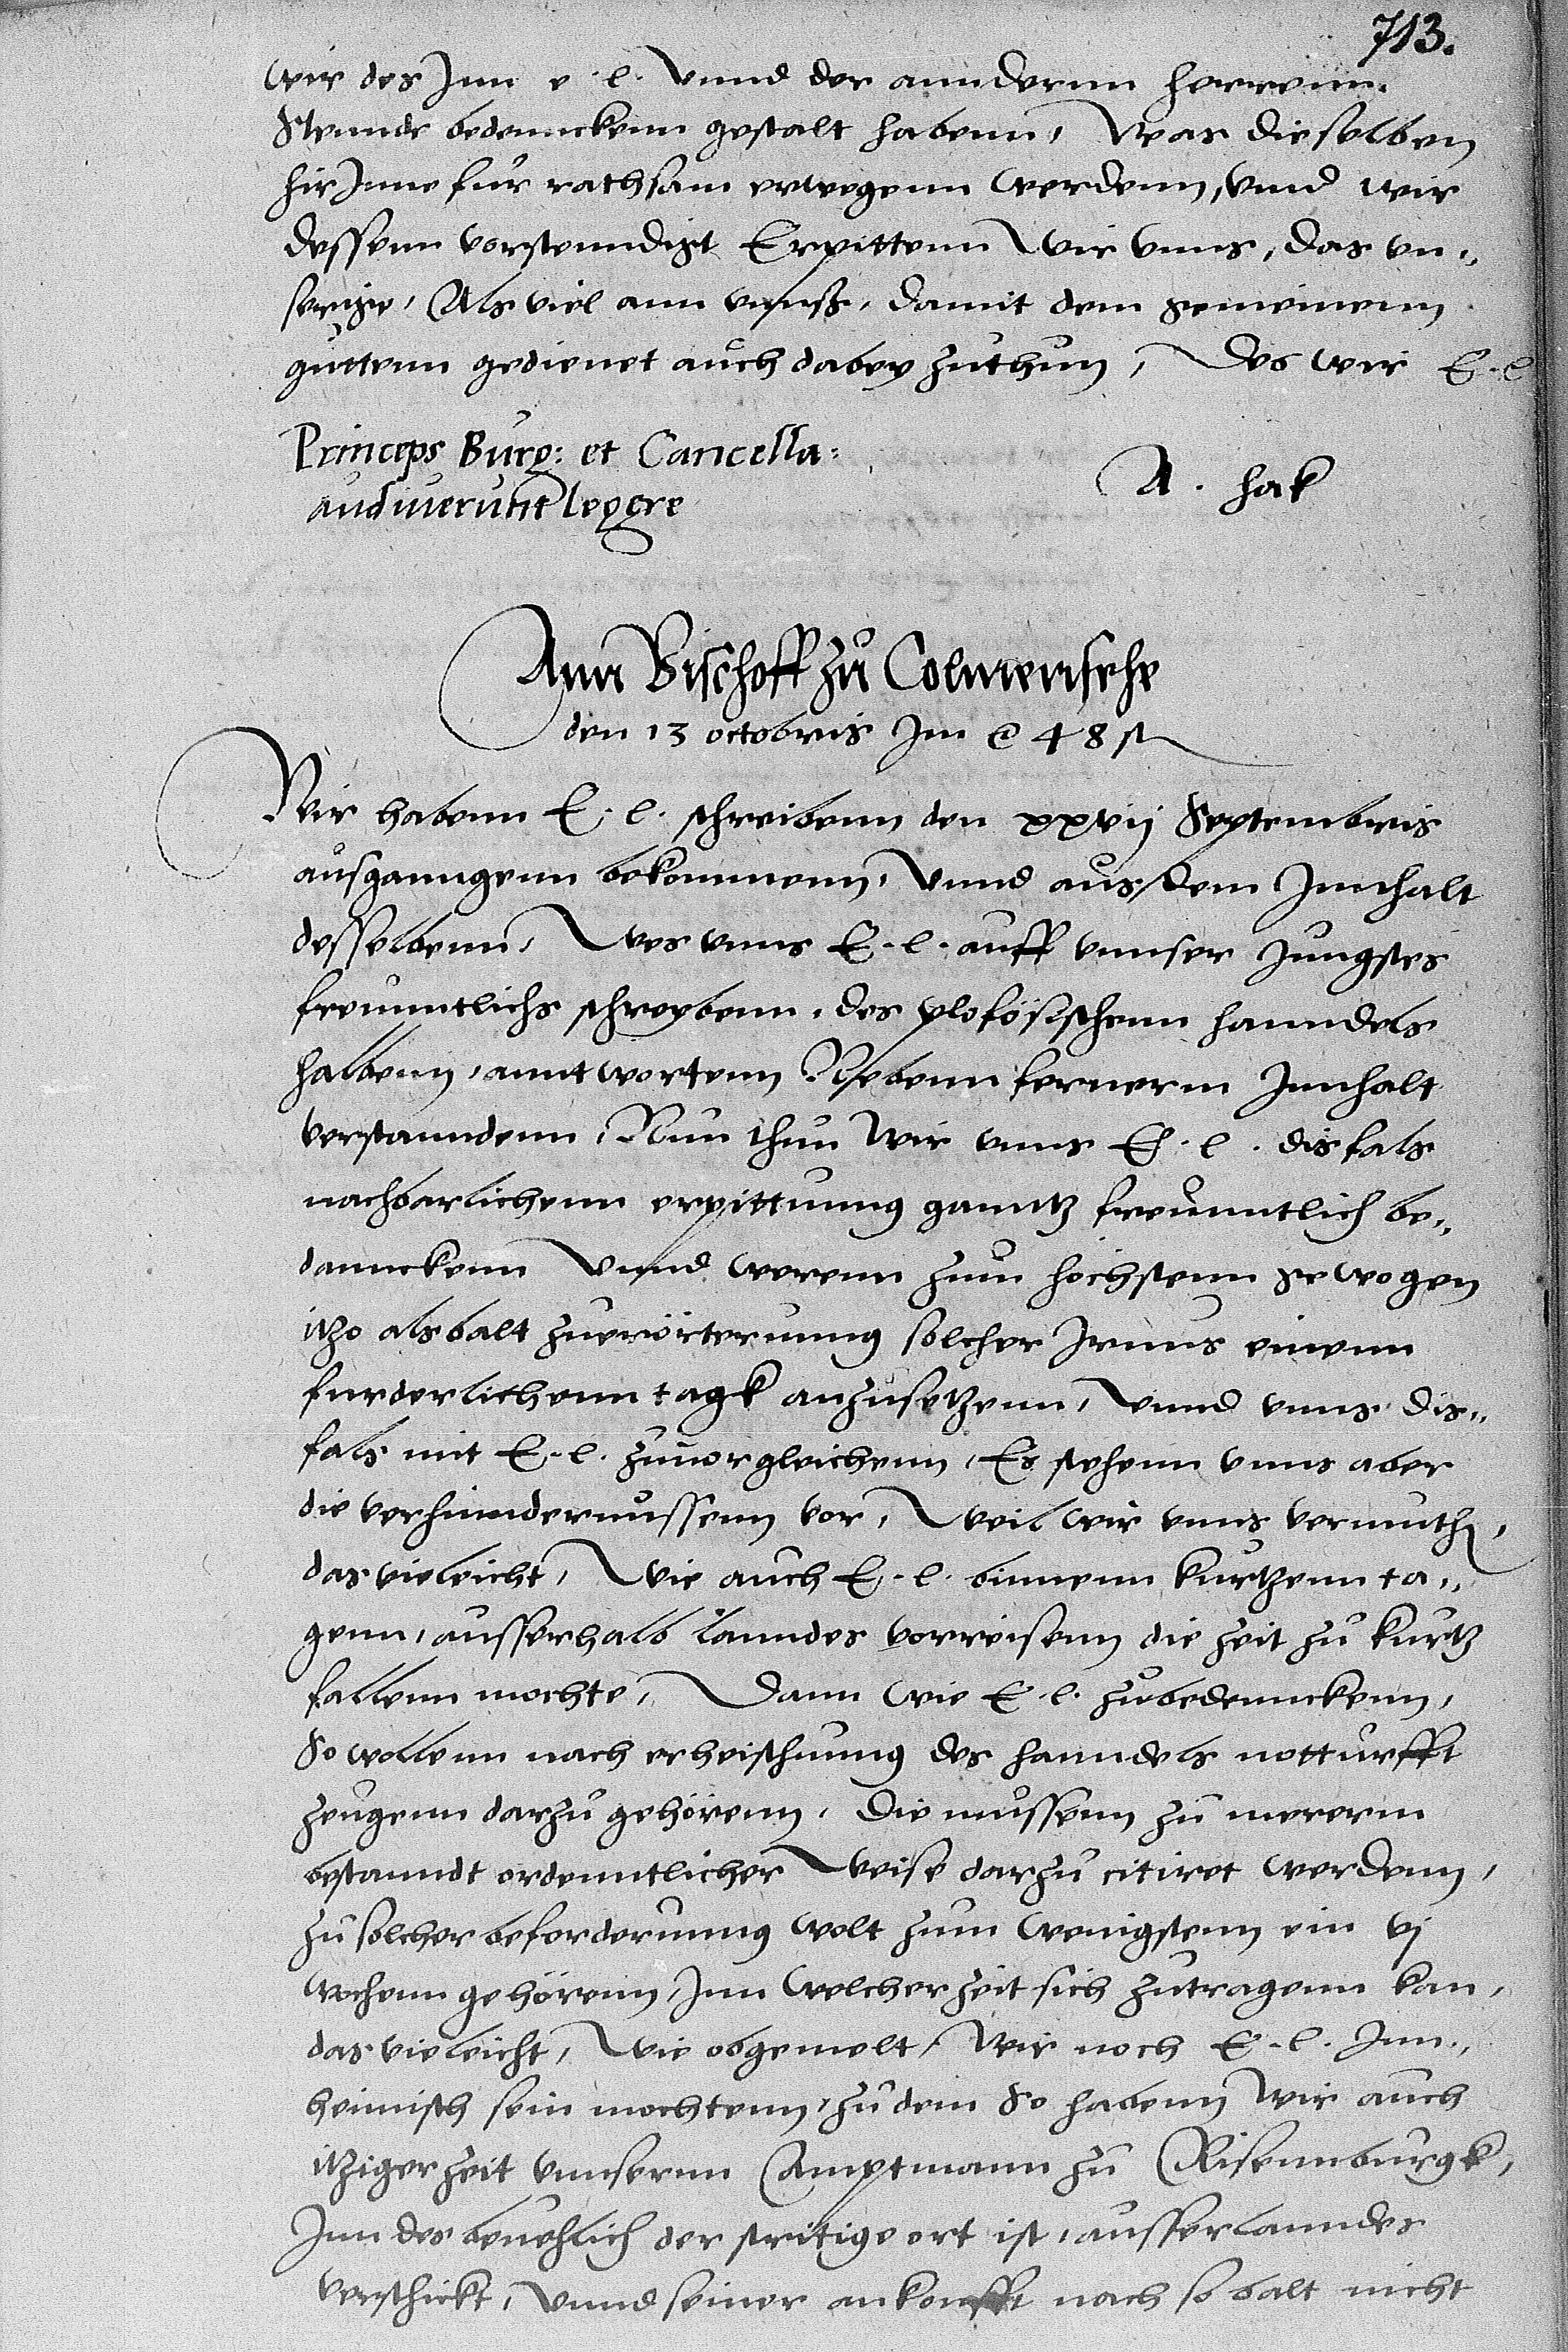 713.
wir des Inn e l. Vnnd der annderenn herrenn
Stennde bedennckenn gestalt habenn, Was dieselben
hir Inne fur rathsam erwegenn werdenn, vnnd wir
dessenn vorstenndigt Erpittenn Wir vnns, das vn„
serige, Als viel ann vnnß, damit dem gemeinenn
guttenn gedienet auch dabey zuthun, Des wir E. l
Princeps Burg: et Cancella:
audiuerunt legere
A. Hak
Ann Bischoff zu Colmensehe
den 13 octobris Im 48st
Wir habenn E. l. schreibenn den xxvij Septembris
ausganngenn bekommenn, Vnnd aus dem Innhalt
desselbenn, Wes vnns E. l. auff vnnser Jungstes
freunntlichs schreybenn, des handels
halbenn, anntwortenn Nebenn fernerm Innhalt
verstanndenn, Nun thun Wir vnns E. l. disfals
nachbarlichenn erpittunng ganntz freunntlich be„
dannckenn Vnnd werenn zum hochstenn gewogen
itzo alsbalt zuerörterunng solcher Irrung einenn
furderlichenn tagk anzusetzenn, Vnnd vnns dis„
fals mit E. l. zuuorgleichenn, Es stehenn vnns aber
die verhindernussenn vor, Weil wir vnns vermuth,
das vieleicht, Wie auch E. l. binnenn kurtzenn ta„
genn, ausserhalb lanndes vorreisenn die zeit zu kurtz
fallenn mochte, Dann wie E. l. zubedennckenn,
So wollenn nach erheischunng des hanndels notturfft
zeugenn darzu gehörenn, Die mussenn zu mererm
bestanndt ordenntlicher Weise darzu citiret werdenn,
zu solcher beforderunng wolt zum wenigstenn ein vj
wochenn gehörenn, Inn welcher zeit sich zutragenn kan,
das vieleicht, Wie obgemelt, Wir noch E. l. Inn„
heimisch sein mochtenn, zu dem So habenn wir auch
itziger zeit vnnsernn Amptmann zu Risennburgk,
Inn des beuehlich der stritige ort ist, ausserlanndes
verschickt, Vnnd seiner ankonfft noch so balt nicht